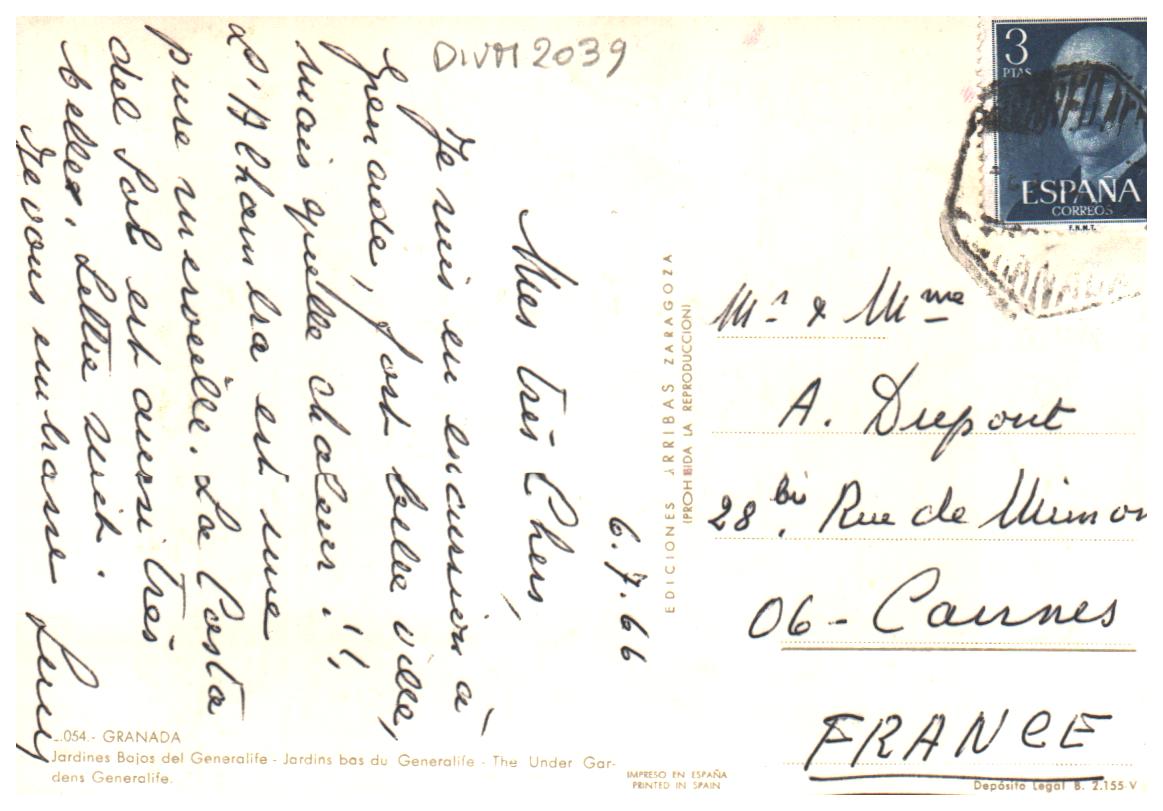 DIVM 2039
6.7.66
Mes très Chers,
Je suis en excursion à
Grenade, fort belle ville,
mais quelle chaleur !!
L'Alhambra est une
pure merveille. La Costa
del Sol est aussi très
belle. Lettre suit.
Je vous embrasse
..054.- GRANADA
Jardines Bajos del Generalife - Jardins bas du Generalife - The Under Gar-
dens Generalife.
EDICIONES ARRIBAS ZARAGOZA
(PROHIBIDA LA REPRODUCCION)
IMPRESO EN ESPAÑA
PRINTED IN SPAIN
3
PTAS
CORREO
ESPAÑA
CORREOS
F.N.M.T.
Mr & Mme
A. Dupont
28 bis, Rue de Mimon
06 - Cannes
FRANCE
Depósito Legal B. 2.155-V